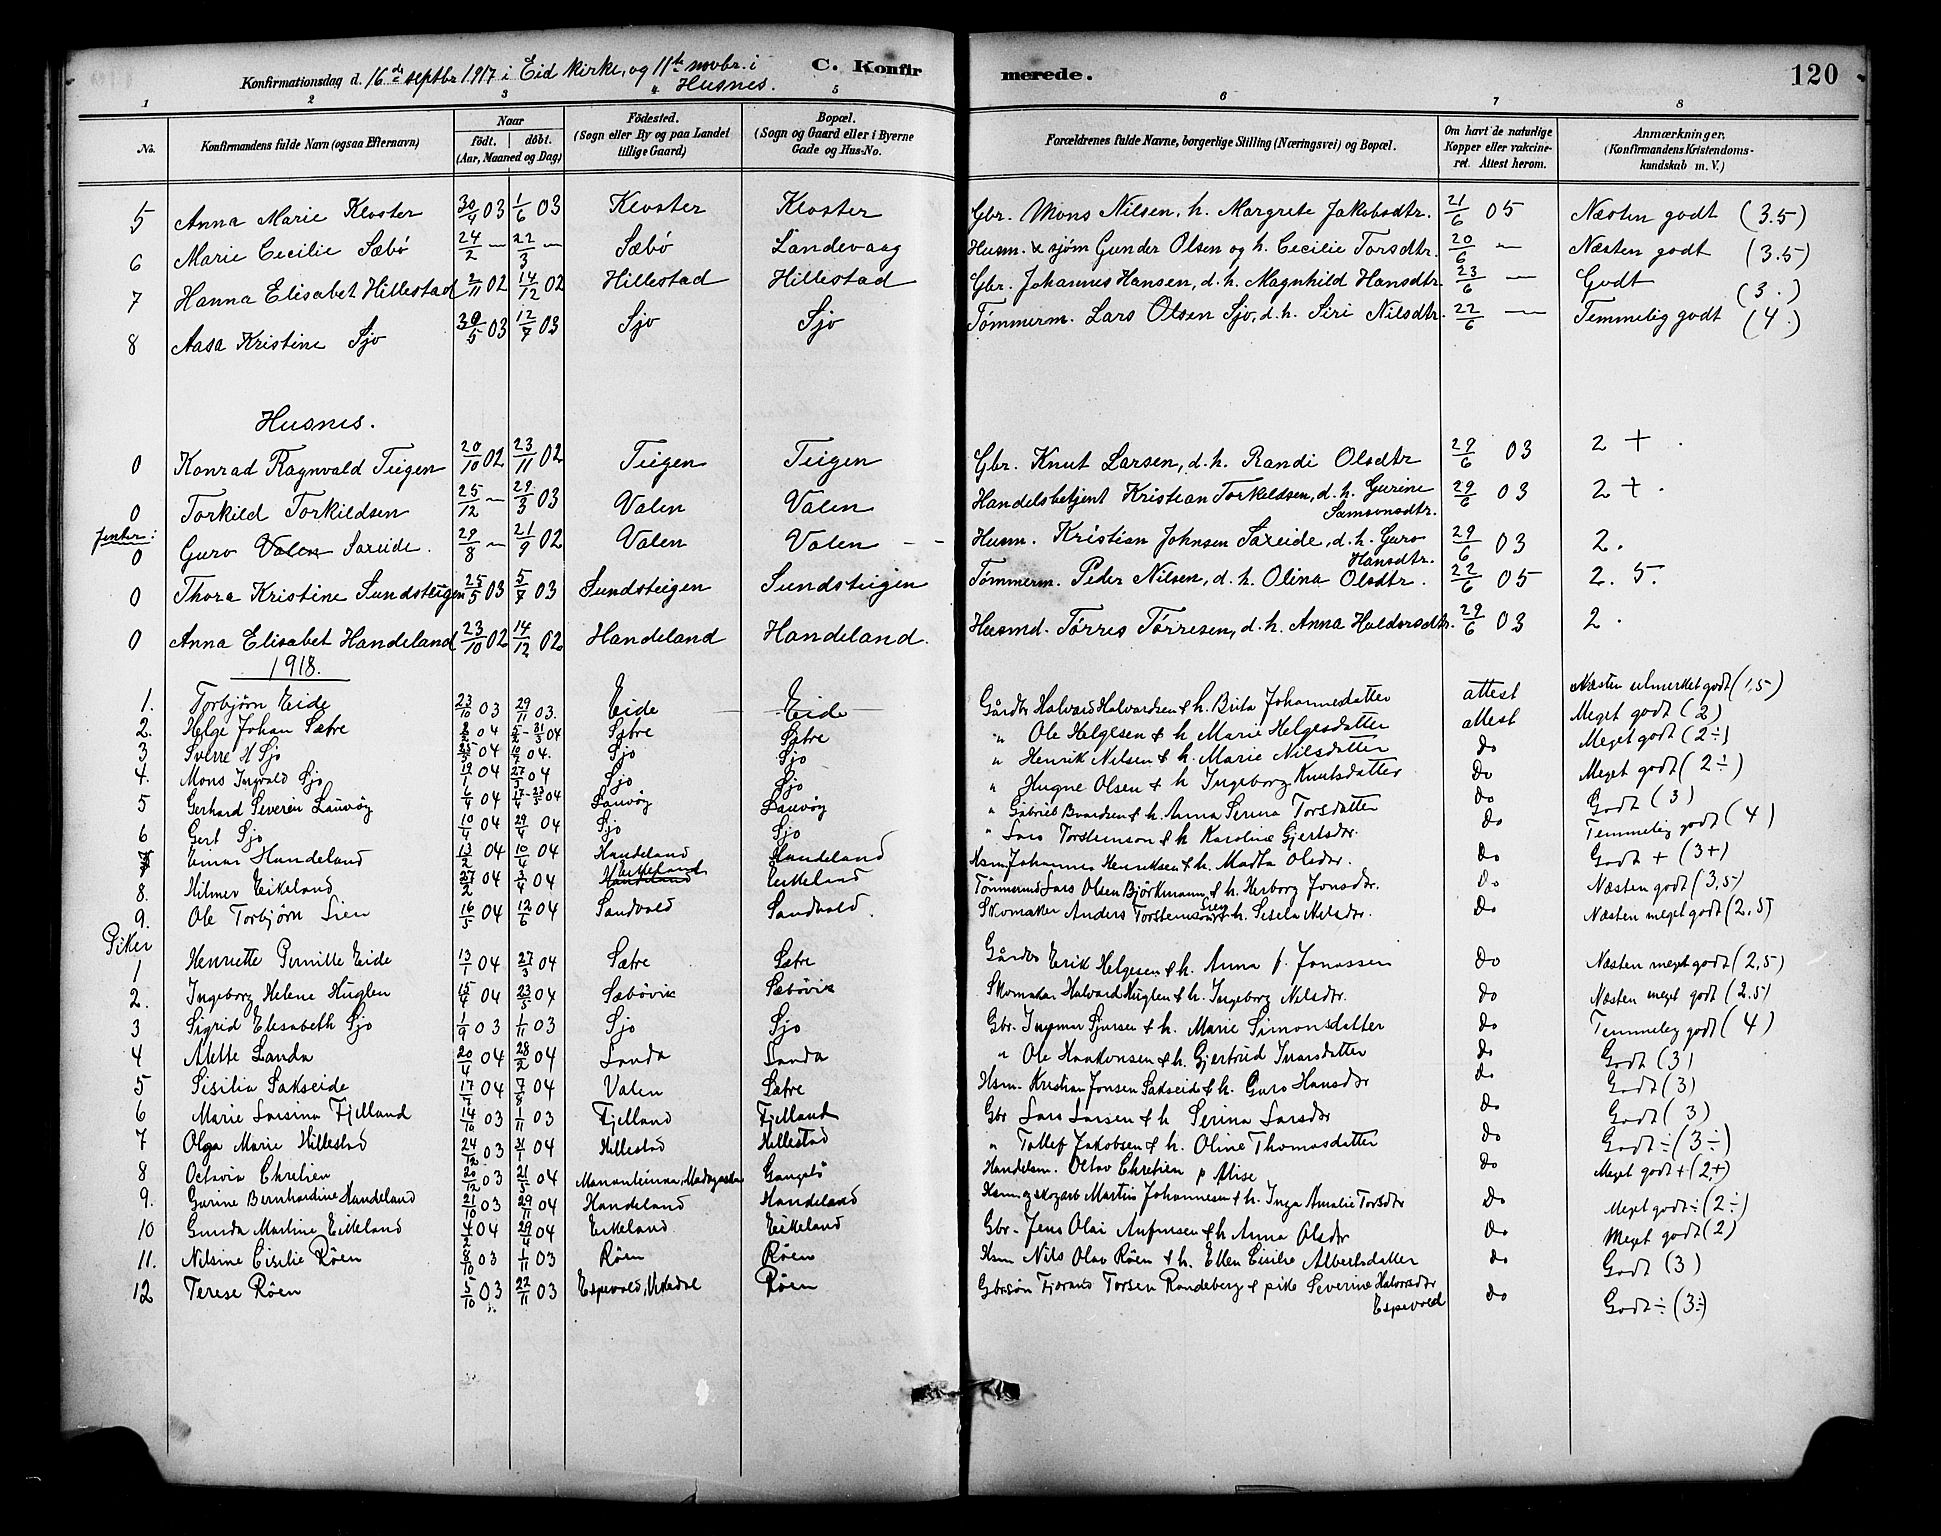 Konfirmationsdag d. 16de septbr 1917 i Eid kirke, og 11te novbr. i Husnes.
C. Konfirmerede.
120
1 2 3 4 5 6 7 8
No. Konfirmandens fulde Navn (ogsaa Efternavn) Naar født. døbt. (Aar, Maaned og Dag) Fødested. (Sogn eller By og paa Landet tillige Gaard) Bopæl. (Sogn og Gaard eller i Byerne Gade og Hus-No. Forældrenes fulde Navne, borgerlige Stilling (Næringsvei) og Bopæl. Om havt de naturlige Kopper eller vakcineret. Attest herom. Anmærkninger. (Konfirmandens Kristendomskundskab m. V.)
5 Anna Marie Kloster 30/4 03 1/6 03 Kloster Kloster Gbr. Mons Nilsen, h. Margrete Jakobsdtr. 21/6 05 Næsten godt (3.5)
6 Marie Cecilie Sæbø 24/2 — 22/3 — Sæbø Landevaag Husm. & sjøm Gunder Olsen og h. Cecilie Torsdtr. 20/6 — Næsten godt (3.5)
7 Hanna Elisabet Hillestad 2/11 02 14/12 02 Hillestad Hillestad Gbr. Johannes Hansen, d. h. Magnhild Hansdtr. 23/6 — Godt (3.)
8 Aasa Kristine Sjo 30/5 03 12/7 03 Sjo Sjo Tømmerm. Lars Olsen Sjo, d. h. Siri Nilsdtr. 22/6 — Temmelig godt (4.)
Husnes.
0 Konrad Ragnvald Teigen 20/10 02 23/11 02 Teigen Teigen Gbr. Knut Larsen, d. h. Randi Olsdtr 29/6 03 2 + .
0 Torkild Torkildsen 25/12 — 29/3 03 Valen Valen Handelsbetjent Kristian Torkildsen, d. h. Gurine Samsonsdtr. 29/6 03 2 + .
jenter:
0 Guro Valen Saxeide. 29/8 — 21/9 02 Valen Valen - - Husm. Kristian Johnsen Saxeide, d. h. Guro Hansdtr. 29/6 03 2.
0 Thora Kristine Sundsteigen 25/5 03 5/7 03 Sundsteigen Sundsteigen Tømmerm. Peder Nilsen, d. h. Olina Olsdtr. 22/6 05 2. 5.
0 Anna Elisabet Handeland 23/10 02 14/12 02 Handeland Handeland. Husmd. Tørres Tørresen, d. h. Anna Haldorsdtr. 29/6 03 2.
1918.
1. Torbjørn Eide 23/10 03 29/11 03. Eide Eide Gårdbr Halvard Halvardsen & h. Brita Johannesdatter attest Næsten udmerket godt (1,5)
2. Helge Johan Sætre 2/2 04 5/2 - 31/3 04 Sætre Sætre " Ole Helgesen & h Marie Helgesdatter attest Meget godt (2)
3 Sverre H Sjo 25/5 04 10/7 04. Sjo Sjo " Henrik Nilsen & h. Marie Nilsdatter do Meget godt (2÷)
4. Mons Ingvald Sjo 19/1 04 27/3 04 Sjo Sjo " Hugne Olsen & h Ingeborg Knutsdatter Do Meget godt (2÷)
5 Gerhard Severin Lauvøy 6/4 04 17/4 - 23/5 04 Lauvøy Lauvøy " Gabriel Bårdsen & h. Anna Serina Torsdatter do Godt (3)
6 Gert Sjo 10/4 04 29/4 04 Sjo Sjo " Lars Torstensson & h Karoline Gjertsdr. do Temmelig godt (4)
7 Einar Handeland 13/2 04 10/4 04 Handeland Handeland Hsm Johannes Henriksen & h. Marta Olsdtr. do Godt + (3+)
8. Hilmer Eikeland 27/2 04 3/4 04 Handeland Eikeland Eikeland Tømmermd Lars Olsen Bjørkmann & h. Herborg Jonsdtr. do Næsten godt (3,5)
9. Ole Torbjørn Lien 16/5 04 12/6 04 Sandvold Sandvold. Skomaker Anders Torstensson Lien & h. Sesela Nilsdtr. do Næsten meget godt (2,5)
Piker
1 Henriette Pernille Eide 13/1 04 27/3 04 Sætre Sætre Gårdbr Erik Helgesen & h. Anna f. Jonassen do Næsten meget godt (2,5)
2. Ingeborg Helene Huglen 15/4 04 23/5 04 Sæbøvik Sæbøvik Skomaker Halvard Huglen & h. Ingeborg Nilsdtr. do Næsten meget godt (2,5)
3 Sigrid Elisabeth Sjo 1/9 03 1/11 03 Sjo Sjo Gbr. Ingmar Sjursen & h. Marie Simonsdatter do Temmelig godt (4)
4 Mette Landa 20/4 04 28/2 04 Landa Landa " Ole Haakonsen & h. Gjertrud Ivarsdatter do Godt (3)
5 Sisilia Sakseide 17/7 04 7/8 04 Valen Sætre Hsm. Kristian Jonsen Sakseide & h. Guro Hansdtr do Godt (3)
6 Marie Larsina Fjelland 14/10 03 1/11 03 Fjelland Fjelland Gbr Lars Larsen & h Serina Larsdtr do Godt (3)
7 Olga Marie Hillestad 24/12 03 31/1 04 Hillestad Hillestad " Tollef Jakobsen & h. Oline Thomasdatter do Godt÷ (3÷)
8 Octavia Chretien 20/12 03 21/5 04 Gangstø Handelsm. Octav Chretien do Meget godt + (2+)
9. Gurine Bernhardine Handeland 21/10 03 29/11 04 Handeland Handeland Martin Johannesen & h. Inga Amalie Torsdtr do Meget godt÷ (2÷)
10 Gunda Martine Eikeland 4/2 04 29/4 04 Eikeland Eikeland Gbr. Jens Olai & h Anna Olsdtr do Meget godt (2)
11. Nilsine Cisilie Røen 8/10 03 1/11 03 Røen Røen Hsm Nils Olav Røen & h. Ellen Cisilie Albertsdatter do Godt (3)
12 Terese Røen 5/10 03 22/11 03 Espevold, Ølvedal Røen Gbrsøn Torsen Randeberg & pike Severine Halvorsdtr Espevold do Godt÷ (3÷)